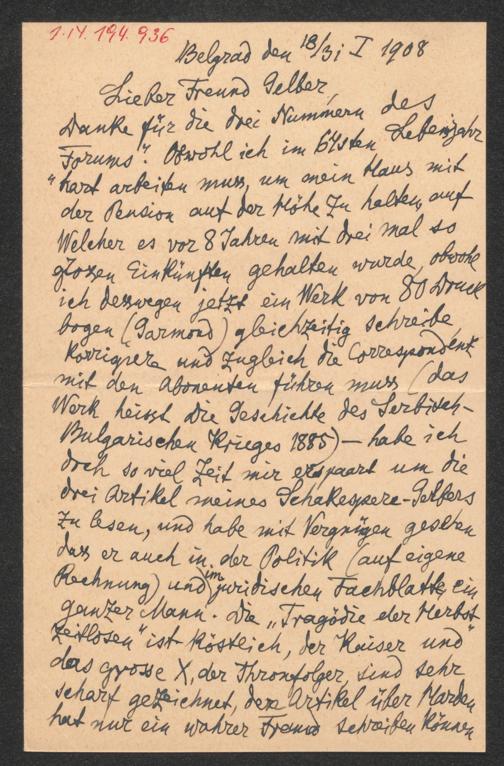 J.N. 194.936
Belgrad den 18/31 I 1908
Lieber Freund Gelber,
Danke für die drei Nummern des
„Forums". Obwohl ich im 64sten Lebensjahr
hart arbeiten muss, um mein Haus mit
der Pension auf der Höhe zu halten, auf
Welcher es vor 8 Jahren mit drei mal so
grozen Einkünften gehalten wurde, obwohl
ich deswegen jetzt ein Werk von 80 Druck
bogen (Garmond) gleichzeitig schreibe,
korrigire und zugleich die Correspondenz
mit den Abonenten führen muss (das
Werk heisst die Geschichte des Serbisch-
Bulgarischen Krieges 1885) – habe ich
doch so viel Zeit mir erspaart um die
drei Artikel meines Schakespere-Gelbers
zu lesen, und habe mit Vergnügen gesehen
dass er auch in der Politik (auf eigene
Rechnung) und im juridischen Fachblatte, ein
ganzer Mann. Die „Tragödie der Herbst
zeitlosen" ist köstlich, der Kaiser und
das grosse X, der Thronfolger, sind sehr
scharf gezeichnet, der Artikel über Harden
hat nur ein wahrer Freund schreiben können